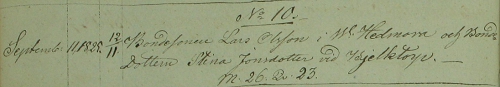 No 10.
Septemb. 11, 1825. 12/11 Bondesonen Lars Olsson i W. Hedmora och Bonde-
Dottern Stina Jonsdotter vid Hjelktorp. —
M. 26. Q. 23.